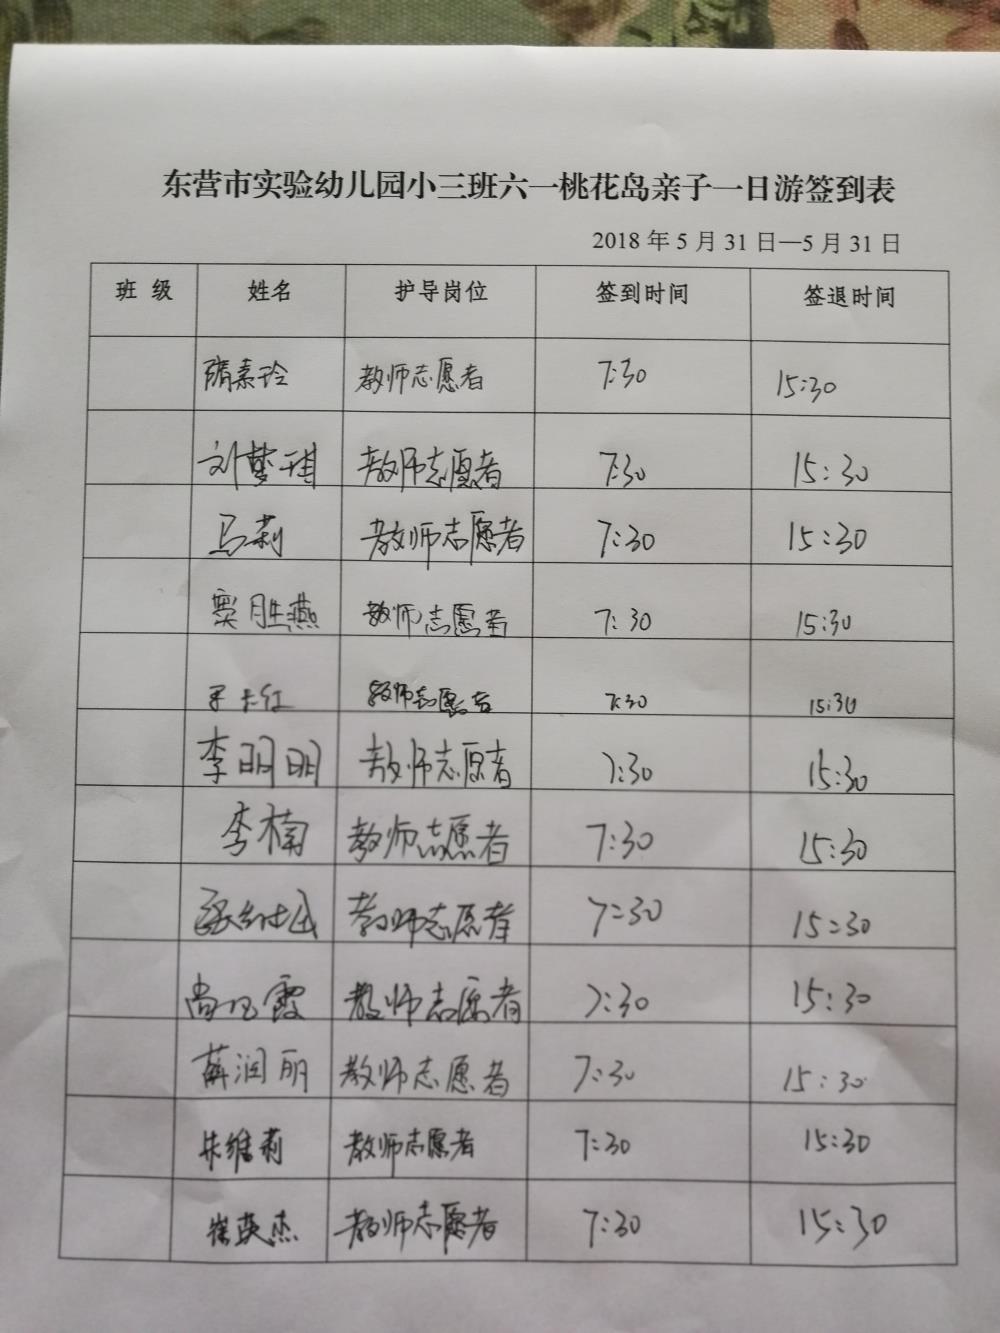 东营市实验幼儿园小三班六一桃花岛亲子一日游签到表
2018年5月31日—5月31日
班 级 姓名 护导岗位 签到时间 签退时间
隋素玲 教师志愿者 7:30 15:30
刘梦琪 教师志愿者 7:30 15:30
马莉 教师志愿者 7:30 15:30
窦胜燕 教师志愿者 7:30 15:30
教师志愿者 7:30 15:30
李明明 教师志愿者 7:30 15:30
李楠 教师志愿者 7:30 15:30
教师志愿者 7:30 15:30
尚 霞 教师志愿者 7:30 15:30
薛润丽 教师志愿者 7:30 15:30
朱维莉 教师志愿者 7:30 15:30
崔英杰 教师志愿者 7:30 15:30